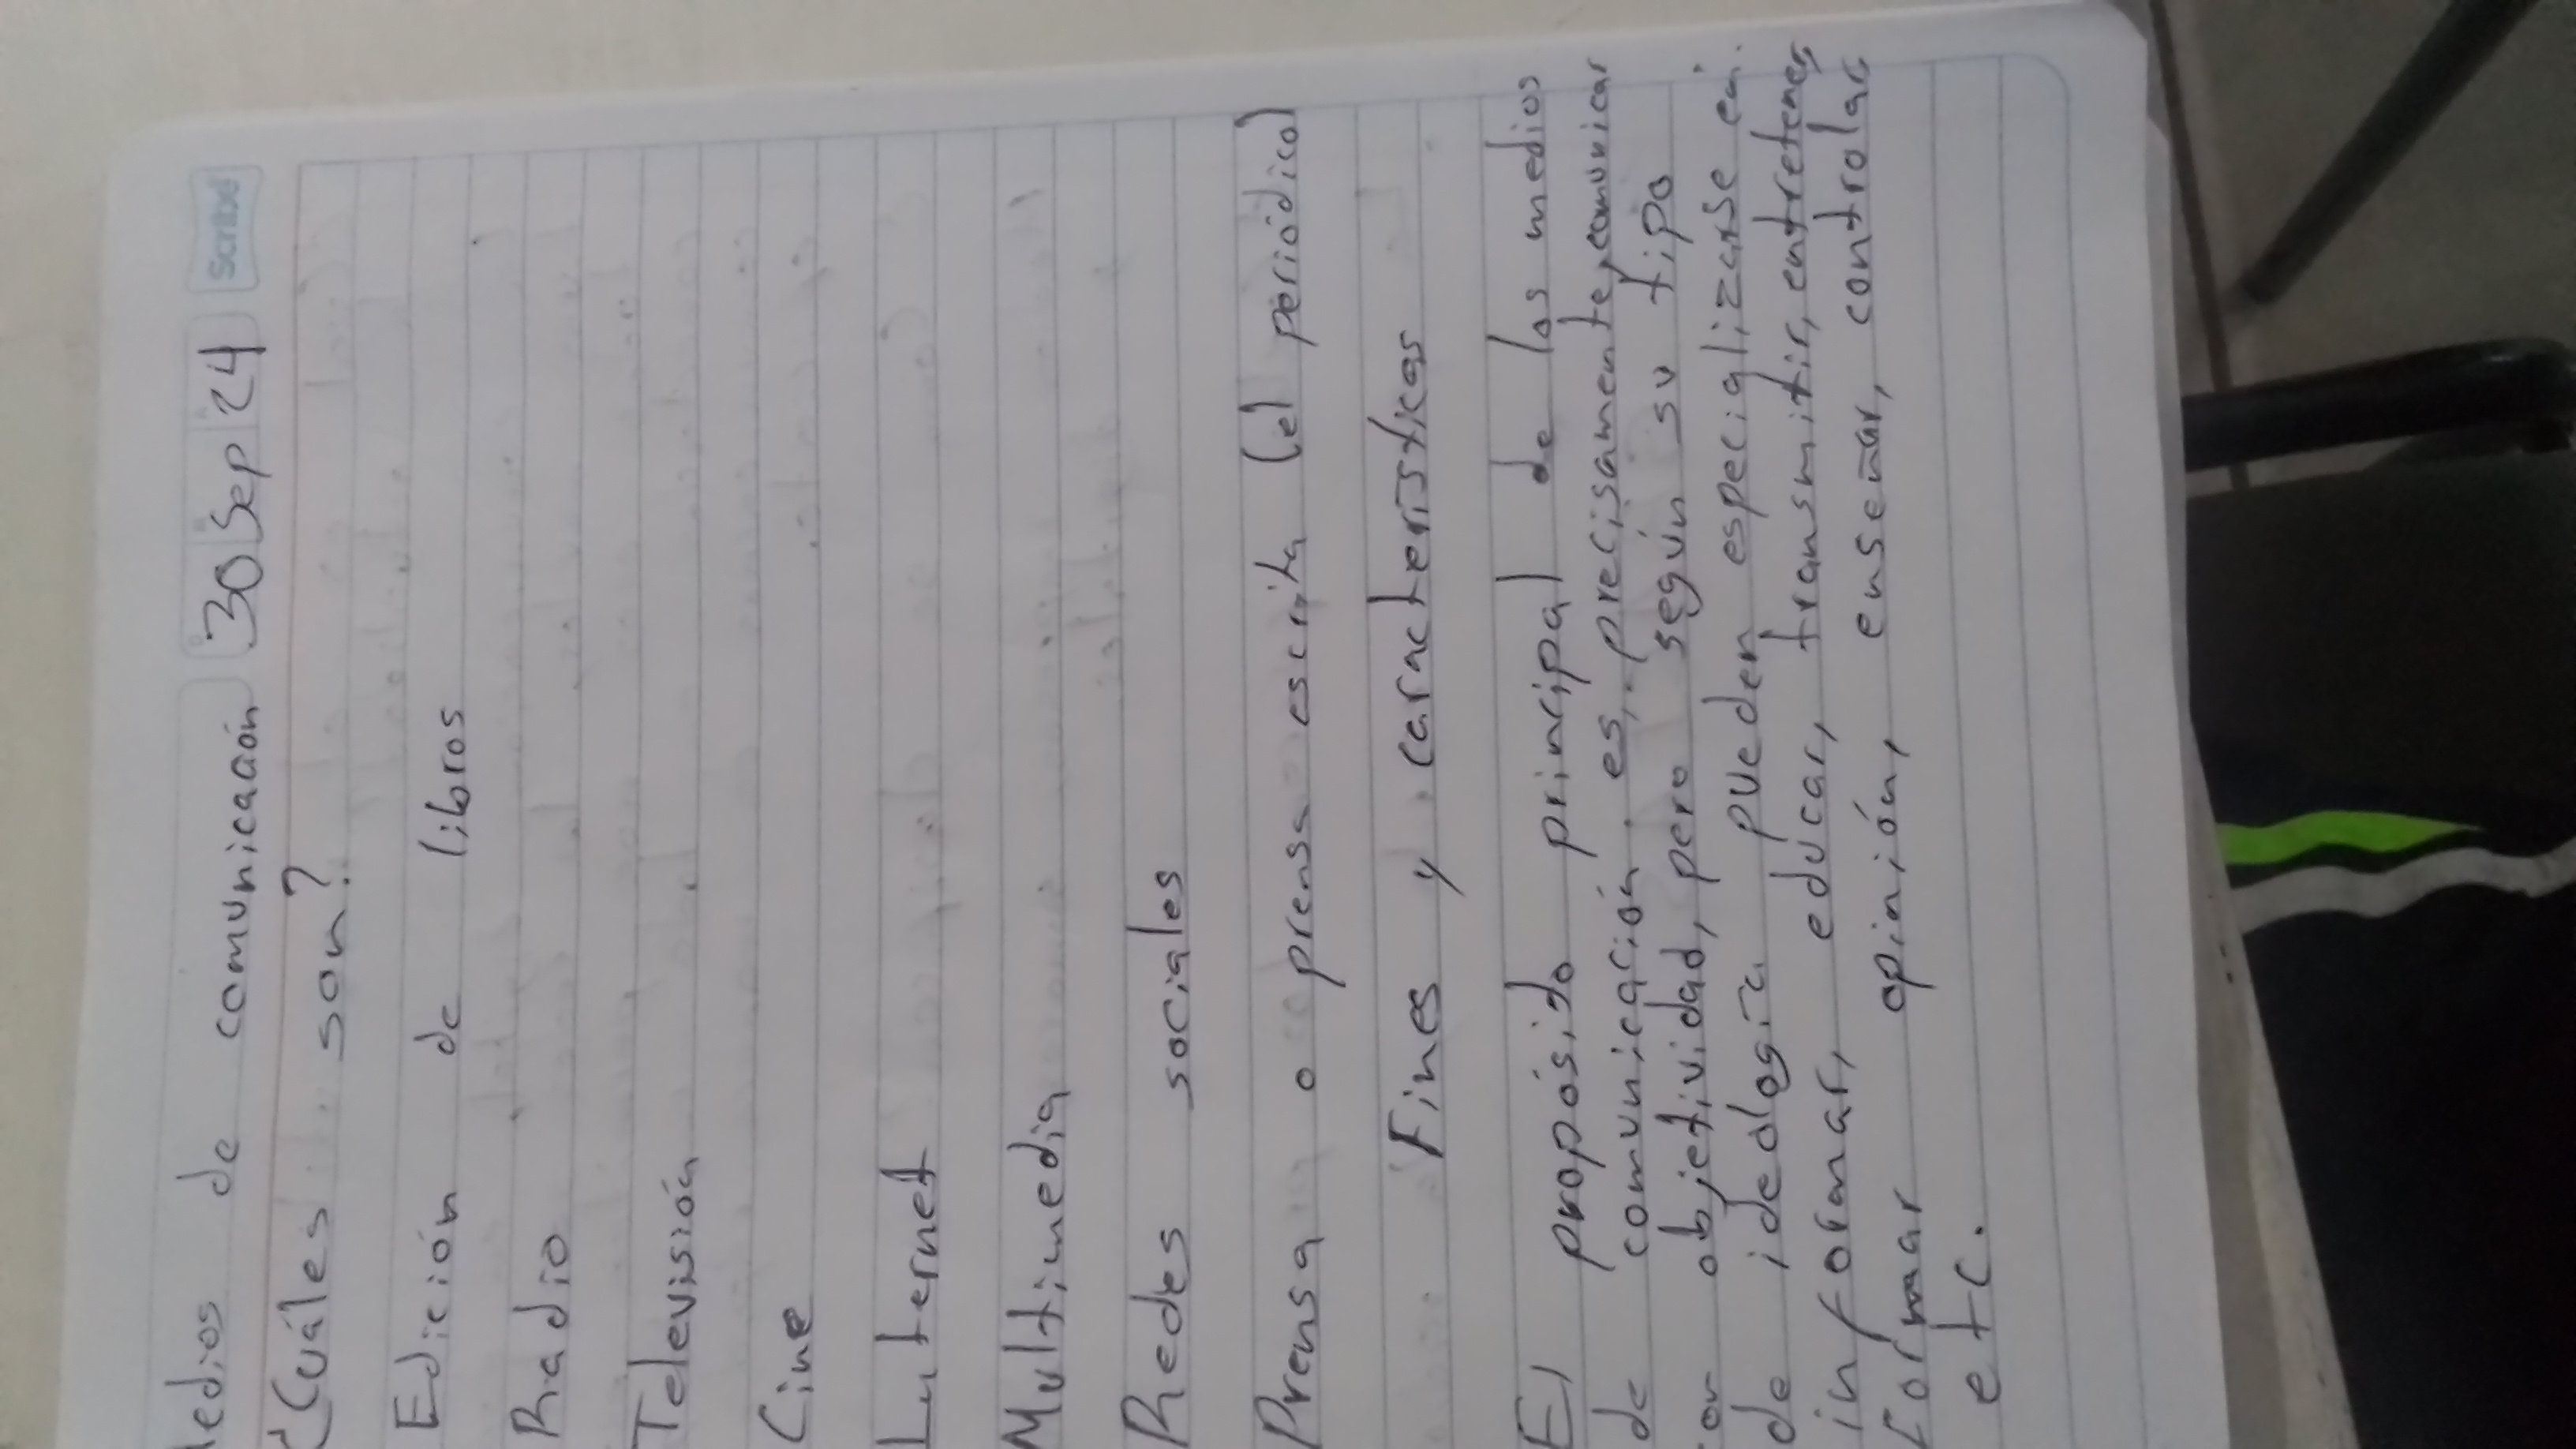 edios de comunicación 30 Sep 24 Scribe
¿Cuáles son?
Edición de libros
Radio
Televisión
Cine
Internet
Multimedia
Redes sociales
Prensa o prensa escrita (el periódico)
Fines y características
El propósito principal de los medios
de comunicación es, precisamente, comunicar
con objetividad, pero según su tipo
de ideología pueden especializarse en:
informar, educar, transmitir, entretener,
formar opinión, enseñar, controlar
etc.